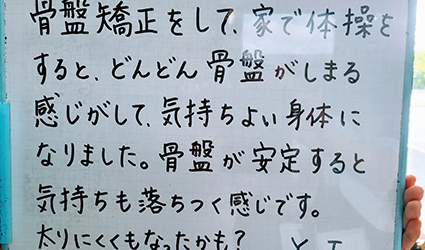 骨盤矯正をして、家で体操を
すると、どんどん骨盤がしまる
感じがして、気持ちよい身体に
なりました。骨盤が安定すると
気持ちも落ちつく感じです。
太りにくくもなったかも？ Y I